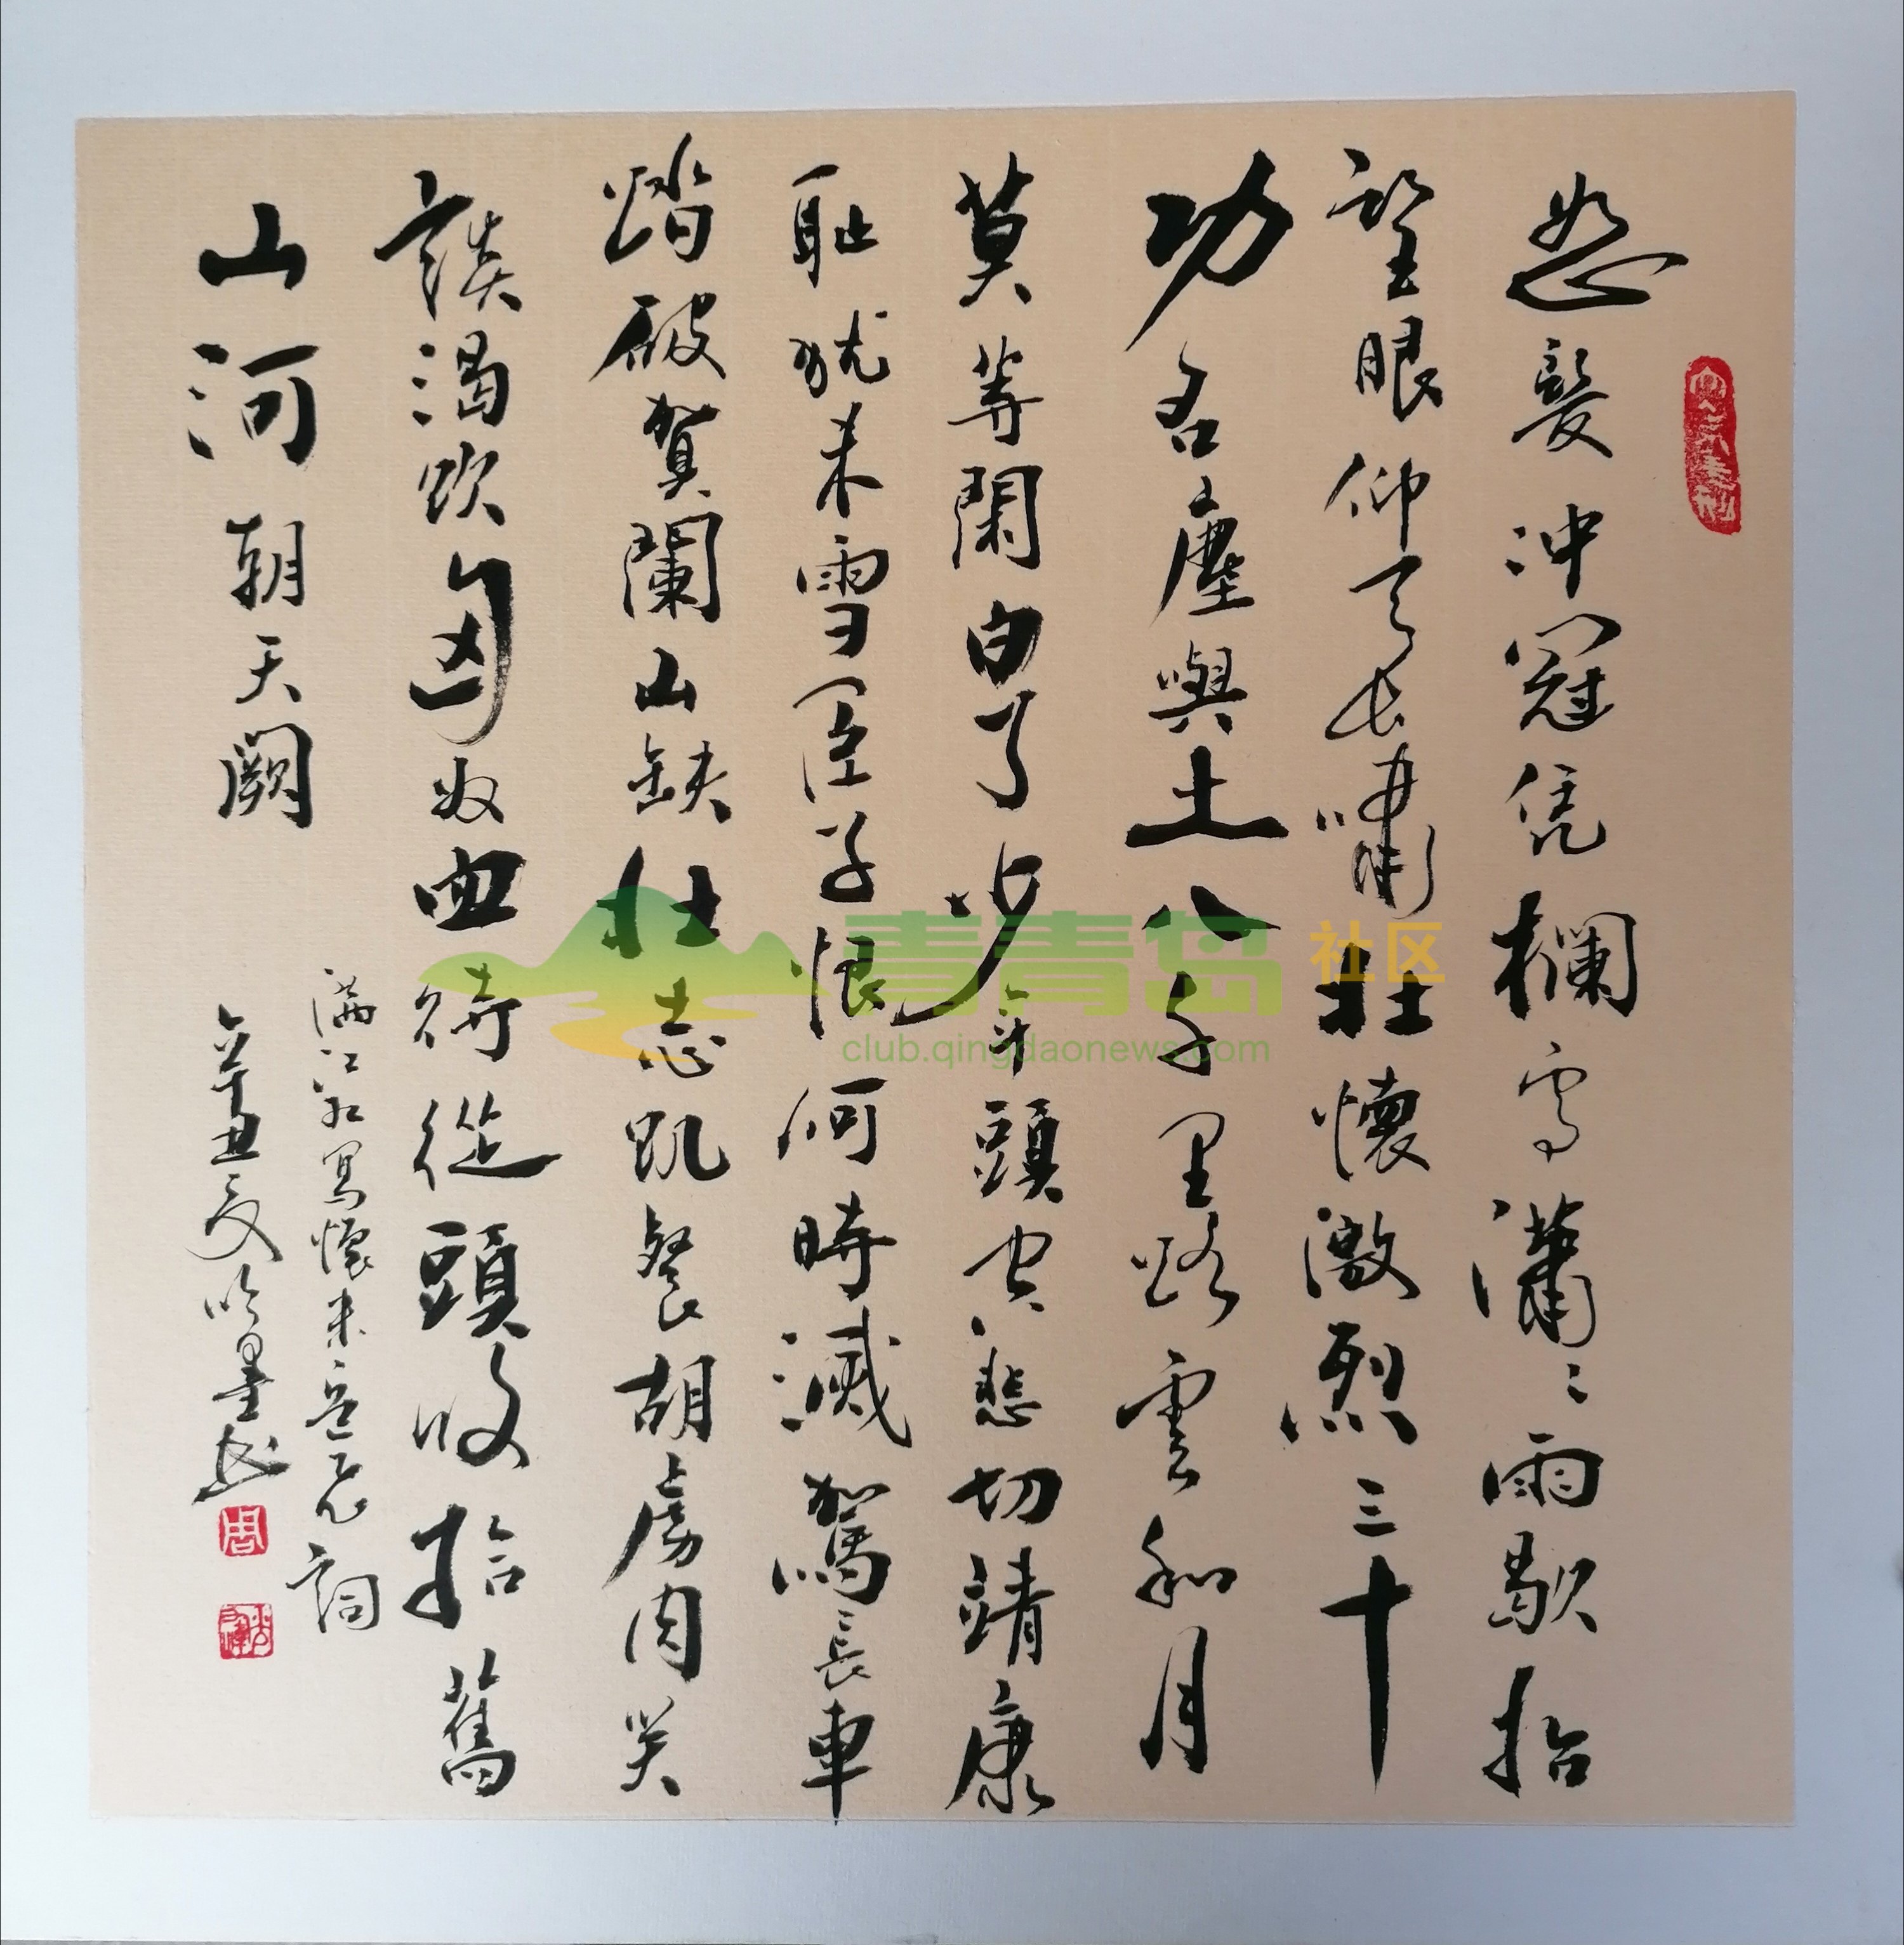 怒髮冲冠凭欄處瀟〻雨歇抬
望眼仰天長嘯壯懷激烈三十
功名塵與土八千里路雲和月
莫等閑白了少年頭空悲切靖康
耻犹未雪臣子恨何時滅駕長車
踏破賀闌山缺壯志飢餐胡虜肉笑
談渴飲匈奴血待從頭收拾舊
山河朝天闕
滿江紅寫懷宋岳飛詞
辛丑夏吟墨書
周
青青岛社区
club.qingdaonews.com